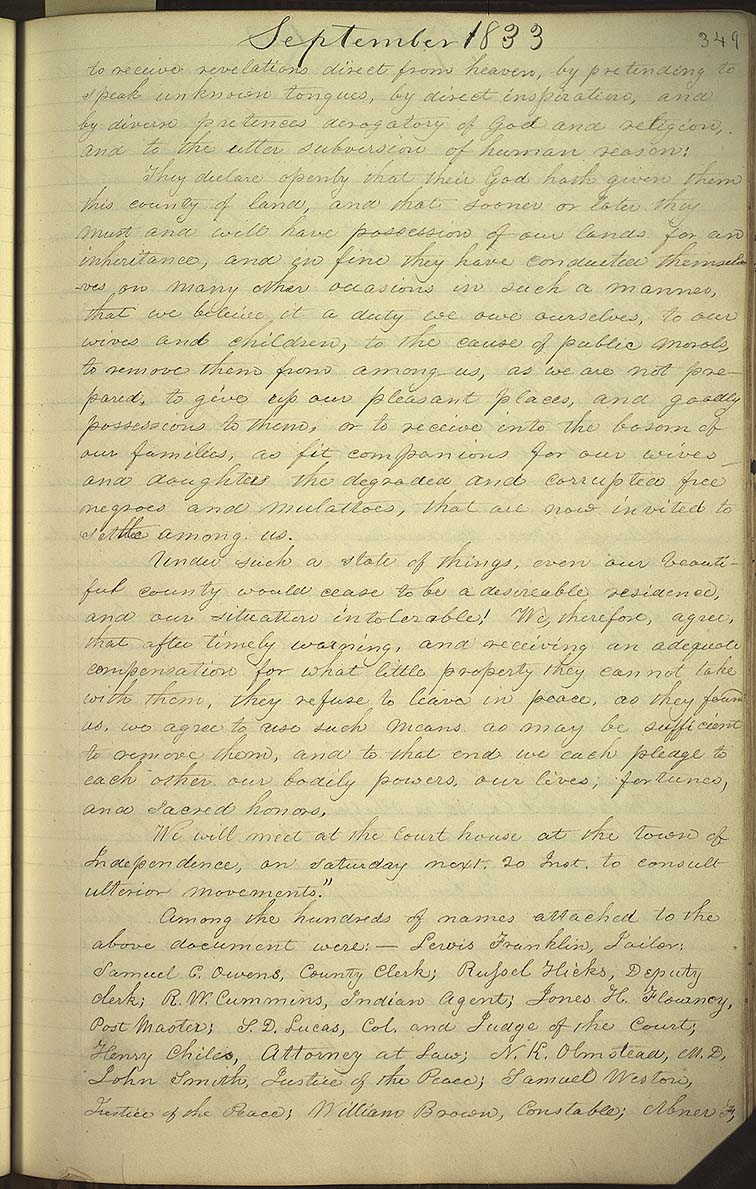 September 1833
349
to receive revelations direct from heaven, by pretending to
speak unknown tongues, by direct inspiration, and
by divers pretences derogatory of God and religion,
and to the utter subversion of human reason:
They declare openly that their God hath given them
this county of land, and that sooner or later they
must and will have possession of our lands for an
inheritance, and in fine they have conducted themsel
-ves on many other occasions in such a manner,
that we believe it a duty we owe ourselves, to our
wives and children, to the cause of public morals,
to remove them from among us, as we are not pre-
pared, to give up our pleasant places, and goodly
possessions to them, or to receive into the bosom of
our families, as fit companions for our wives
and daughters the degraded and corrupted free
negroes and mulattoes, that are now invited to
settle among us.
Under such a state of things, even our beauti-
ful county would cease to be a desireable residence,
and our situation intolerable! We, therefore, agree,
that after timely warning, and receiving an adequate
compensation for what little property they cannot take
with them, they refuse to leave in peace, as they found
us, we agree to use such means as may be sufficient
to remove them, and to that end we each pledge to
each other our bodily powers, our lives, fortunes,
and sacred honors.
We will meet at the court house at the town of
Independence, on saturday next. 20 Inst. to consult
ulterior movements."
Among the hundreds of names attached to the
above document were:— Lewis Franklin, Jailor;
Samuel C. Owens, County Clerk; Russel Hicks, Deputy
Clerk; R. W. Cummins, Indian Agent; Jones H. Flournoy,
Post Master; S. D. Lucas, Col. and Judge of the Court;
Henry Chiles, Attorney at Law; N. K. Olmstead, M. D,
John Smith, Justice of the Peace; Samuel Weston,
Justice of the Peace; William Brown, Constable; Abner F,